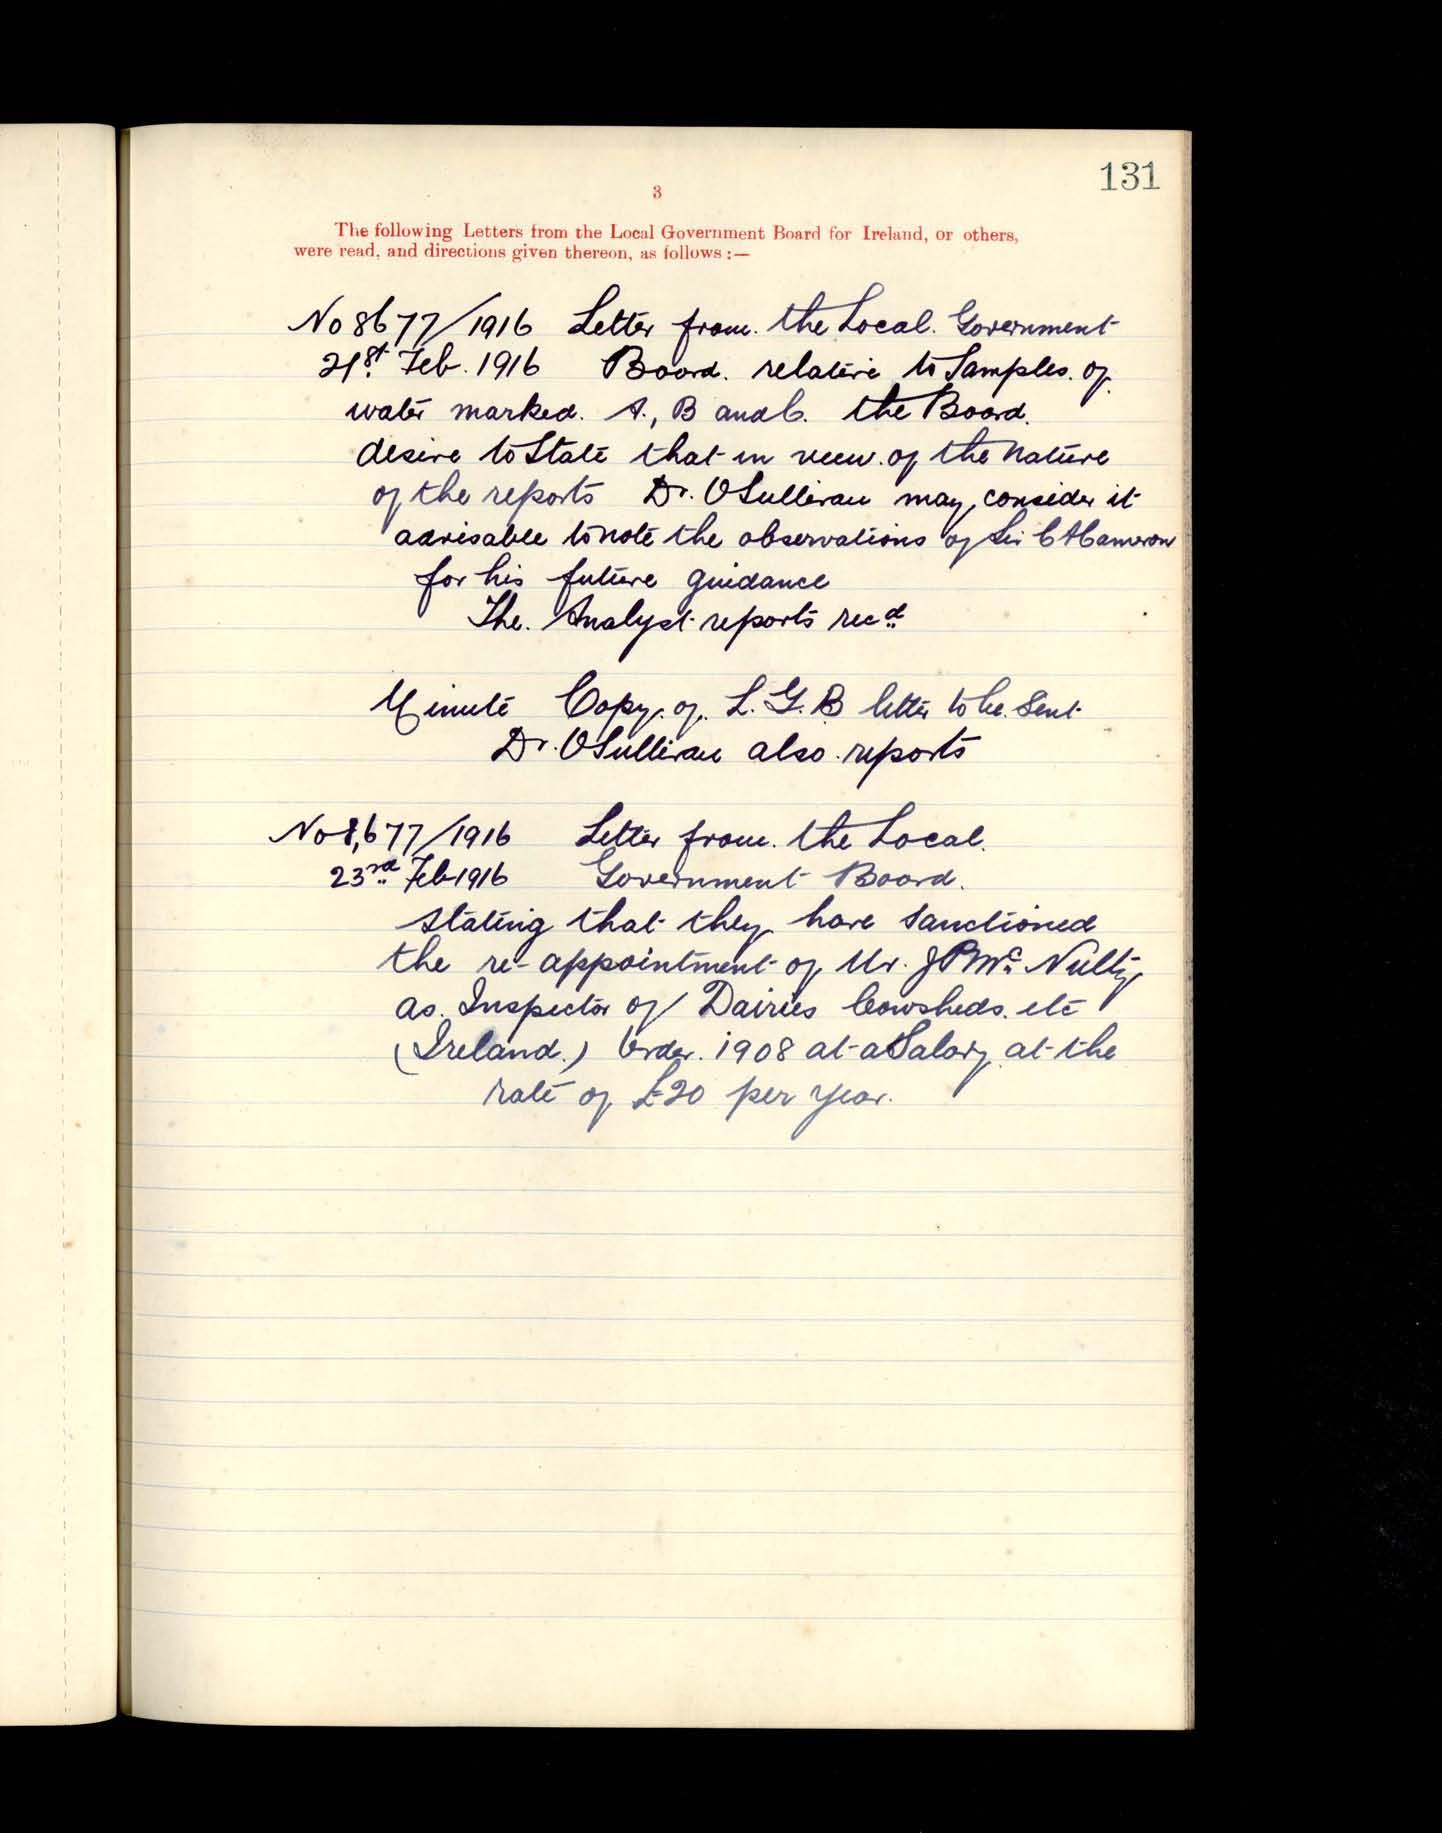 131
3
The following Letters from the Local Government Board for Ireland, or others,
were read, and directions given thereon, as follows :—
No 8677/1916 Letter from. the Local. Government
21st Feb. 1916 Board. relative to Samples. of
water marked. A., B and C. the Board.
desire to State that in view. of the nature
of the reports Dr. O'Sullivan may consider it
advisable to note the observations of Sir C A Cameron
for his future guidance
The. Analyst reports recd
Minute Copy. of. L. G. B letter to be. Sent
Dr. O'Sullivan also. reports
No 8,677/1916 Letter from. the Local.
23rd Feb 1916 Government Board.
stating that they have sanctioned
the re-appointment of Mr. J P Mc Nulty
as. Inspector of Dairies Cowsheds. etc
(Ireland.) Order. 1908 at a Salary at the
rate of £20 per year.